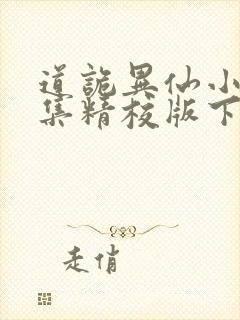 道詭異仙小
集精校版下
走俏